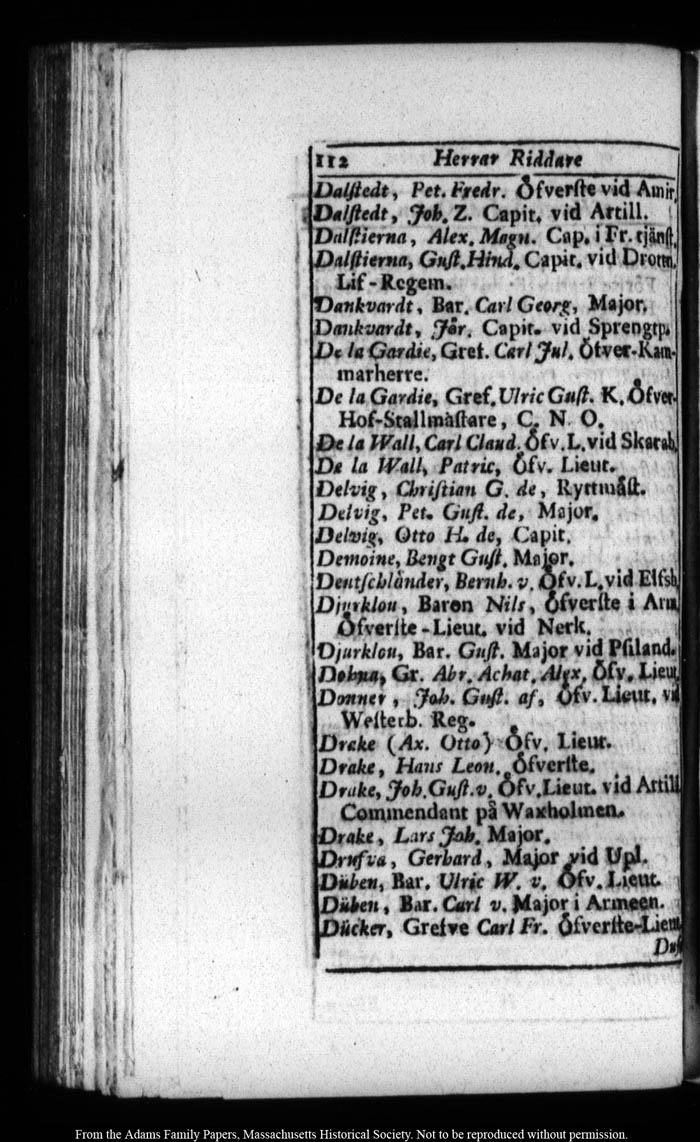 112 Herrar Riddare
Dalſtedt, Pet. Fredr. Öfverſte vid Amir.
Dalſtedt, Joh. Z. Capit. vid Artill.
Dalſtierna, Alex. Magn. Cap. i Fr. tjänſt.
Dalſtierna, Guſt. Hind. Capit. vid Drottn.
Lif-Regem.
Dankvardt, Bar. Carl Georg, Major.
Dankvardt, Jör. Capit. vid Sprengtp.
De la Gardie, Gref. Carl Jul. Öfver-Kam-
marherre.
De la Gardie, Gref. Ulric Guſt. K. Öfver-
Hof-Stallmäſtare, C. N. O.
De la Wall, Carl Claud. Öfv. L. vid Skarab.
De la Wall, Patric, Öfv. Lieut.
Delvig, Chriſtian G. de, Ryttmäſt.
Delvig, Pet. Guſt. de, Major.
Delwig, Otto H. de, Capit.
Demoine, Bengt Guſt. Major.
Deutſchländer, Bernh. v. Öfv. L. vid Elfsb.
Djurklou, Baron Nils, Öfverſte i Arm.
Öfverſte-Lieut. vid Nerk.
Djurklou, Bar. Guſt. Major vid Pſiland.
Dohna, Gr. Abr. Achat. Alex. Öfv. Lieut.
Donner, Joh. Guſt. af, Öfv. Lieut. vid
Weſterb. Reg.
Drake (Ax. Otto) Öfv. Lieut.
Drake, Hans Leon. Öfverſte.
Drake, Joh. Guſt. v. Öfv. Lieut. vid Artill.
Commendant på Waxholmen.
Drake, Lars Joh. Major.
Drufva, Gerhard, Major vid Upl.
Düben, Bar. Ulric W. v. Öfv. Lieut.
Düben, Bar. Carl v. Major i Armeen.
Dücker, Grefve Carl Fr. Öfverſte-Lieut.
From the Adams Family Papers, Massachusetts Historical Society. Not to be reproduced without permission.